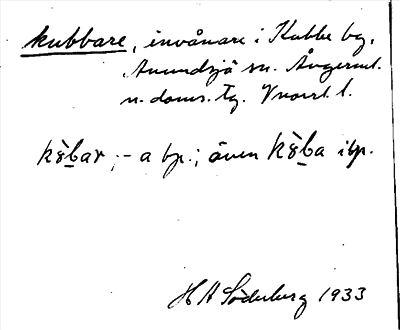 kubbare, invånare i Kubbe by,
Anundsjö sn. Ångerml.
n. doms. tg. Vnorrl. l.
kȣ̀bar, -a bp.; även kȣ̀ba ibp.
H A Söderberg 1933